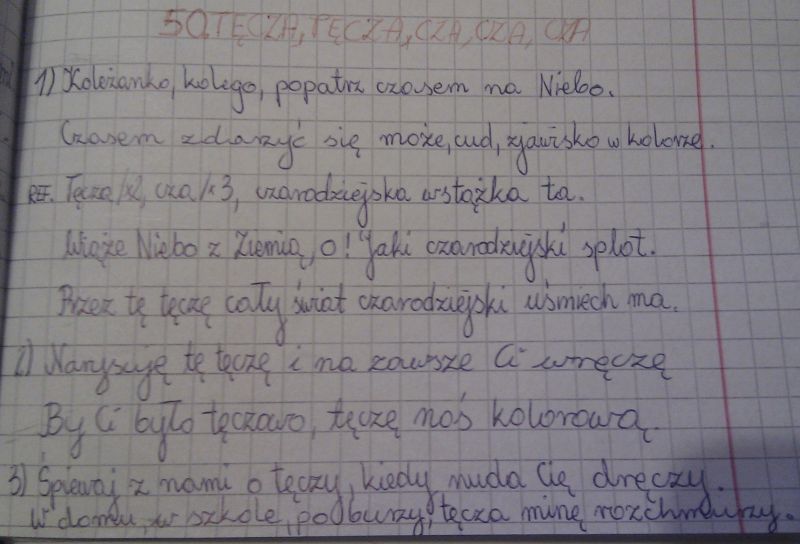 50. TĘCZA, TĘCZA, CZA, CZA, CZA
1) Koleżanko, kolego, popatrz czasem na Niebo.
Czasem zdarzyć się może, cud, zjawisko w kolorze.
REF. Tęcza /x2, cza /x3, czarodziejska wstążka ta.
Wiąże Niebo z Ziemią, o! Jaki czarodziejski splot.
Przez tę tęczę cały świat czarodziejski uśmiech ma.
2) Narysuję tę tęczę i na zawsze Ci wręczę
By Ci było tęczowo, tęczę noś kolorową.
3) Śpiewaj z nami o tęczy, kiedy nuda Cię dręczy.
W domu, w szkole, po burzy, tęcza minę rozchmurzy.